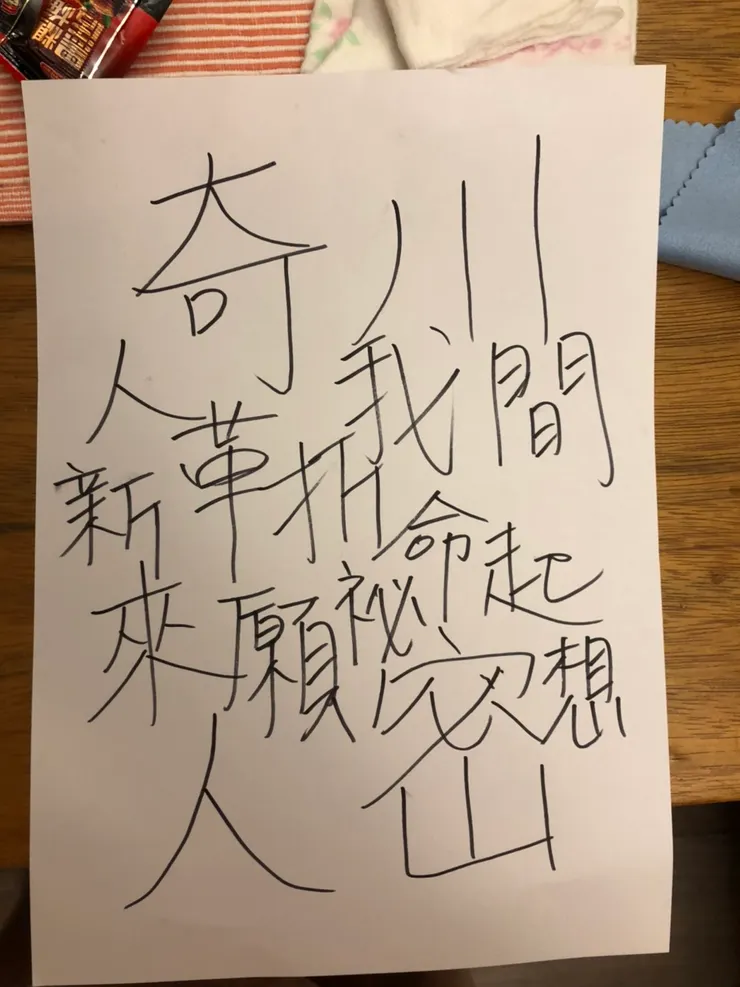 奇川
人我間
新革折命起
來願祕密想
人山